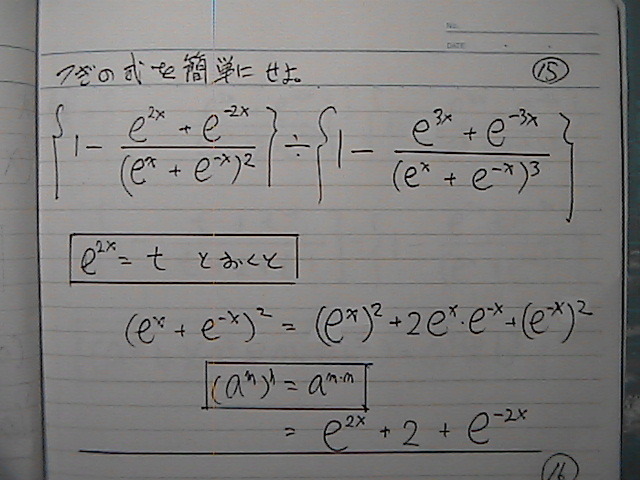 No.
DATE
つぎの式を簡単にせよ。 ⑮
{1 - (e^{2x} + e^{-2x})/(e^x + e^{-x})^2} ÷ {1 - (e^{3x} + e^{-3x})/(e^x + e^{-x})^3}
e^{2x} = t とおくと
(e^x + e^{-x})^2 = (e^x)^2 + 2e^x・e^{-x} + (e^{-x})^2
(a^m)^n = a^{m・n}
= e^{2x} + 2 + e^{-2x}
⑯